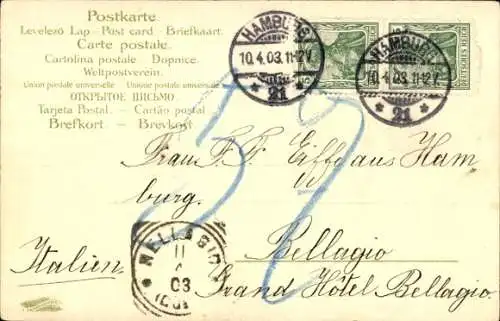 Postkarte
Levelező Lap - Post card - Briefkaart
Carte postale.
Cartolina postale Dopnice.
Weltpostverein.
Union postale universelle Unione postale universale
ОТКРЫТОЕ ПИСЬМО
Tarjeta Postal. - Cartão postal
Brefkort - Brevkost
HAMBURG
10.4.03.11-12V.
* 21 *
HAMBURG
10.4.03.11-12V.
* 21 *
DEUTSCHES REICH
Frau F. F. Eiffe aus Ham
burg.
Bellagio
Italien.
Grand Hôtel Bellagio.
BELLAGIO
11
03